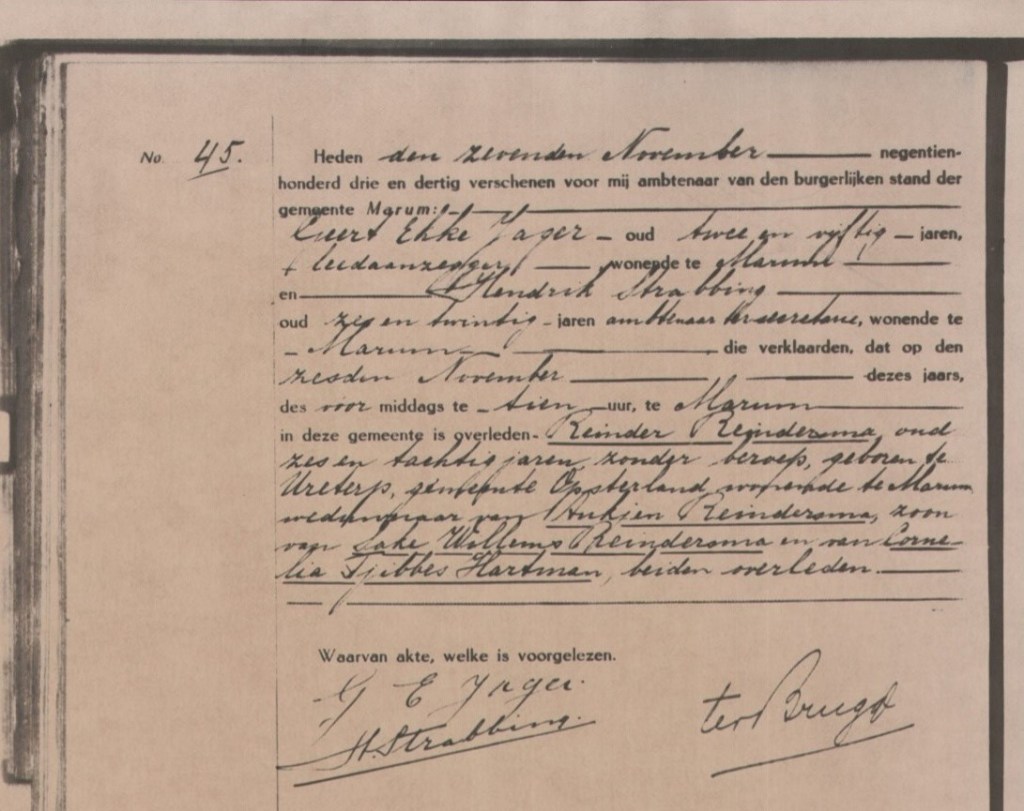 No. 45.
Heden den zevenden November negentien-
honderd drie en dertig verschenen voor mij ambtenaar van den burgerlijken stand der
gemeente Marum:
Geert Ekke Jager – oud twee en vijftig – jaren,
leedaanzegger, wonende te Marum
en Hendrik Strabbing
oud zes en twintig – jaren ambtenaar ter secretarie, wonende te
– Marum – die verklaarden, dat op den
zesden November dezes jaars,
des voor middags te – tien – uur, te Marum
in deze gemeente is overleden – Reinder Reindersma, oud
zes en tachtig jaren, zonder beroep, geboren te
Ureterp, gemeente Opsterland, wonende te Marum
weduwnaar van Aukjen Reindersma, zoon
van Sake Willems Reindersma en van Corne-
lia Tjibbes Hartman, beiden overleden.
Waarvan akte, welke is voorgelezen.
G E Jager.
H. Strabbing.
ter Brugd